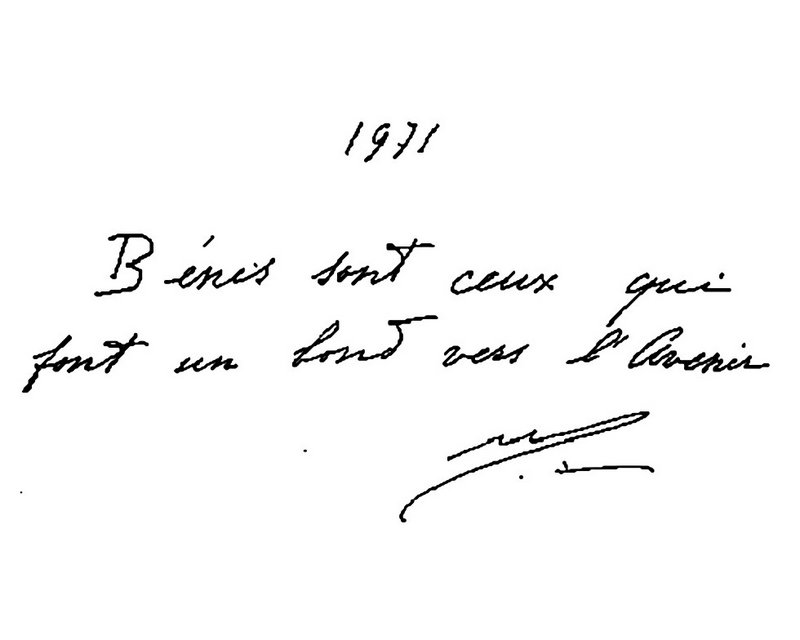 1971
Bénis sont ceux qui
font un bond vers l'Avenir